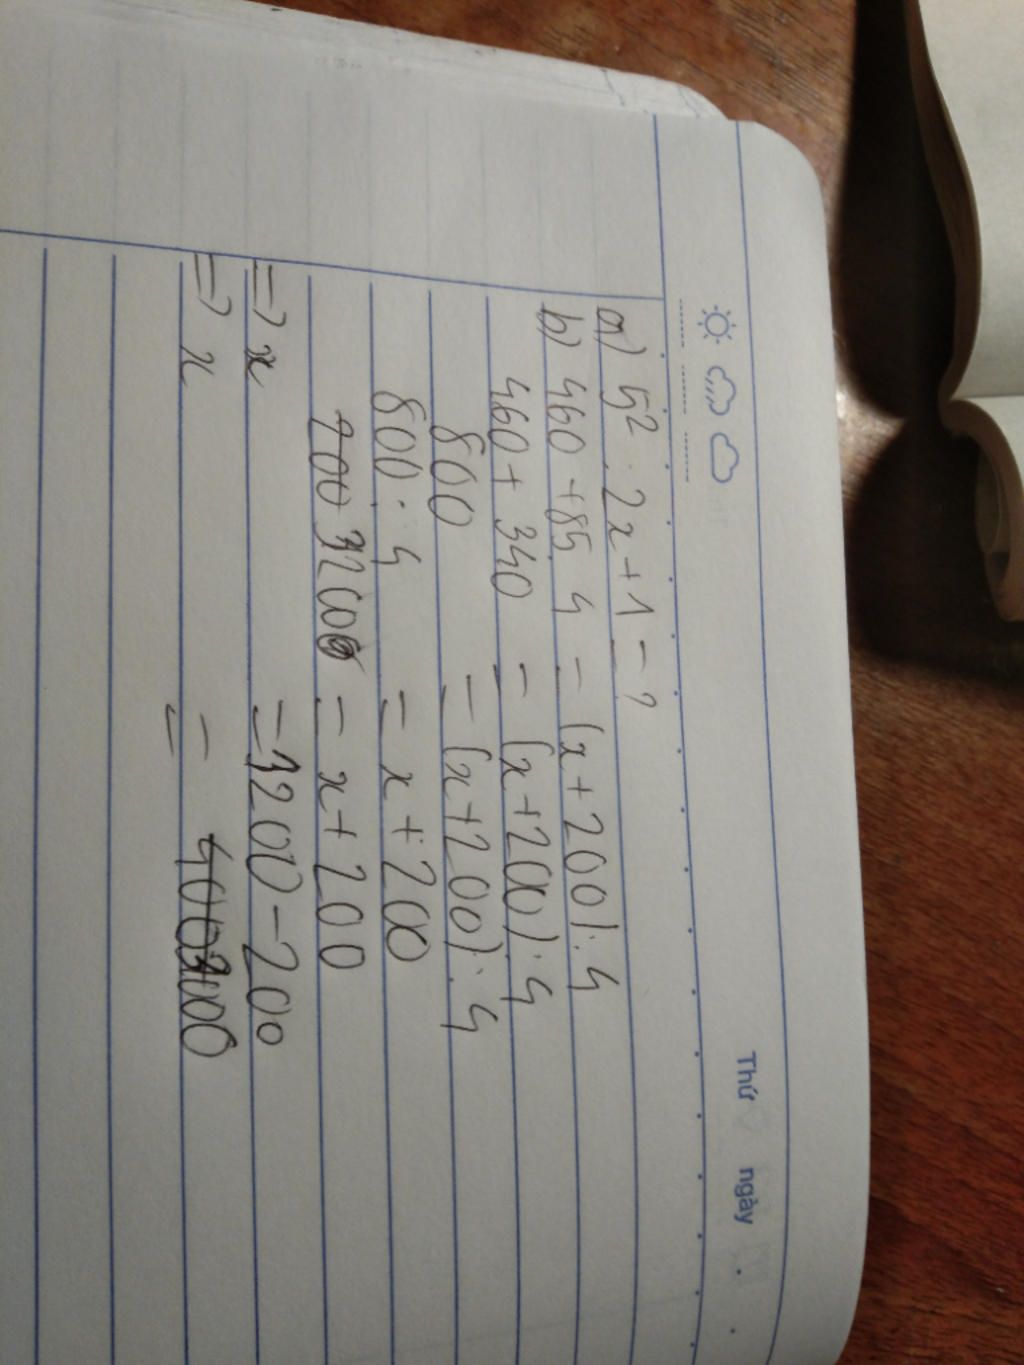 Thứ ngày
a) 5² . 2x + 1 = ?
b) 460 + 85 . 4 = (x + 200) : 4
460 + 340 = (x + 200) : 4
800 = (x + 200) : 4
800 . 4 = x + 200
3200 = x + 200
=> x = 3200 - 200
=> x = 3000
=